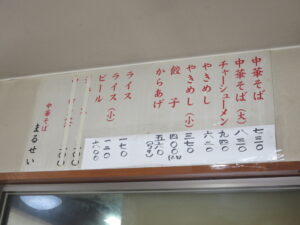 中華そば 七三〇
中華そば（大） 八三〇
チャーシューメン 九四〇
やきめし 六三〇
やきめし（小） 三七〇
餃子 四〇〇
からあげ 五六〇
ライス 一七〇
ライス（小）
ビール 六〇〇
中華そば
まるせい